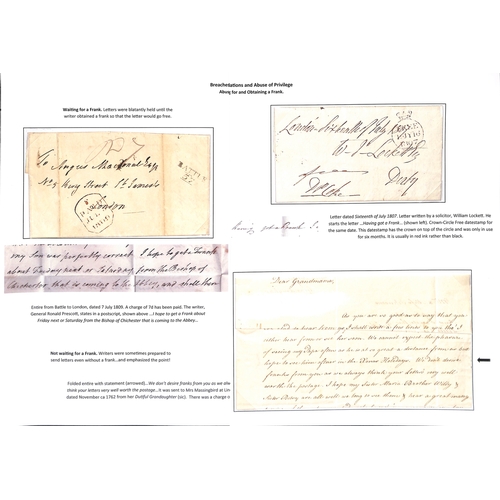 Breachetiations and Abuse of Privilege
Abng for and Obtaining a Frank.
Waiting for a Frank. Letters were blatantly held until the
writer obtained a frank so that the letter would go free.
To Angus Macdonald Esqr
No 5 Bury Street St James's
London
BATTLE
my Son was perfectly correct I hope to get a Frank
about Friday next or Saturday from the Bishop of
Chichester that is coming to the Abbey, and shall then
Entire from Battle to London, dated 7 July 1809. A charge of 7d has been paid. The writer,
General Ronald Prescott, states in a postscript, shown above ...I hope to get a Frank about
Friday next or Saturday from the Bishop of Chichester that is coming to the Abbey...
Not waiting for a Frank. Writers were sometimes prepared to
send letters even without a frank...and emphasized the point!
Folded entire with statement (arrowed)... We don't desire franks from you as we alw
think your letters very well worth the postage...It was sent to Mrs Massingbird at Lin
dated November ca 1762 from her Dutiful Grandaughter (sic). There was a charge o
London Sixteenth of July 1807
W. J. Lockett
Derby
having got a Frank I
Letter dated Sixteenth of July 1807. Letter written by a solicitor, William Lockett. He
starts the letter ...Having got a Frank... (shown left). Crown-Circle Free datestamp for
the same date. This datestamp has the crown on top of the circle and was only in use
for six months. It is usually in red ink rather than black.
Dear Grandmama,
As you are so good as to say that you
franks from you as we always think your Letters very well
worth the postage I hope my Sister Maria Brother Willy &